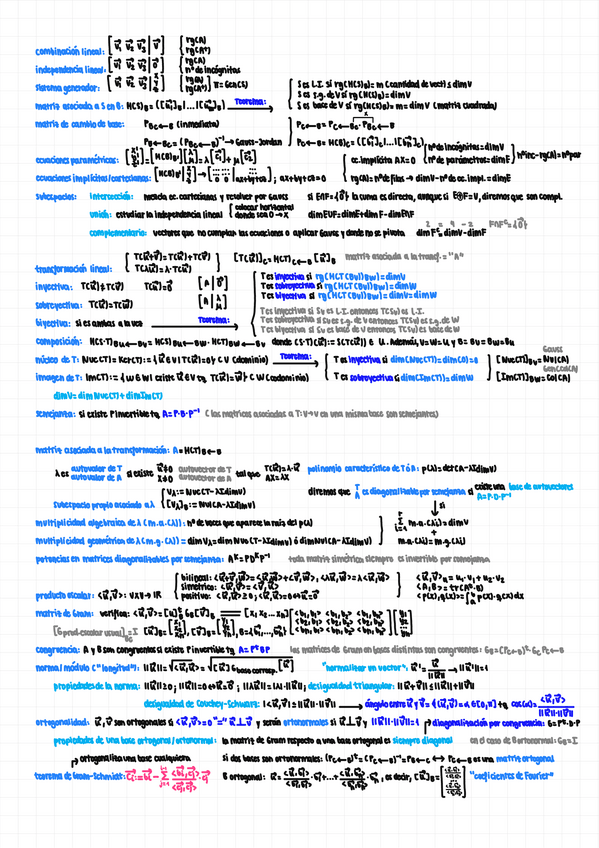 combinación lineal: [ v⃗₁ v⃗₂ v⃗₃ | v⃗ ] { rg(A) rg(A*)
independencia lineal: [ v⃗₁ v⃗₂ v⃗₃ | 0⃗ ] { rg(A) nº de incógnitas
sistema generador: [ v⃗₁ v⃗₂ v⃗₃ | ] { rg(A) rg(A*)
S es L.I. si rg(M(S)B) = m (cantidad de vect) ≤ dimV
S es s.g. de V si rg(M(S)B) = dimV
matriz asociada a S en B: M(S)B = ([v⃗₁]B | ... [v⃗m]B) Teorema: S es base de V si rg(M(S)B) = m = dimV (matriz cuadrada)
matriz de cambio de base: PB₀←B (inmediata)
(PB←B₀ = (PB₀←B)⁻¹ → Gauss-Jordan
ecuaciones paramétricas:
nº de incógnitas = dimV
nº de parámetros = dimE
ec. implícita AX = 0
ecuaciones implícitas/cartesianas: ; ax+by+cz=0 rg(A) = nº de filas → dimV - nº de ec. impl. = dimE
subespacios: intersección: mezcla ec. cartesianas y resolver por Gauss si E∩F={0⃗} la suma es directa, aunque si E⊕F=V, diremos que son compl.
unión: estudiar la independencia lineal { colocar horizontal donde sea 0 → x dimE∪F = dimE + dimF - dimE∩F
complementario: vectores que no cumplan las ecuaciones o aplicar Gauss y donde no se pivota dimFᶜ = dimV - dimF
transformación lineal: { T(u⃗+v⃗) = T(u⃗)+T(v⃗) T(λu⃗) = λ·T(u⃗) } [T(u⃗)]C = M(T)C←B [u⃗]B matriz asociada a la transf. = "A"
inyectiva: T(u⃗)≠T(v⃗) T(u⃗)=0⃗ [A | 0⃗]
T es inyectiva si rg(M(T(Bv))Bw) = dimV
T es sobreyectiva si rg(M(T(Bv))Bw) = dimW
T es biyectiva si rg(M(T(Bv))Bw) = dimV = dimW
sobreyectiva: T(u⃗)=T(v⃗)
T es inyectiva si Sv es L.I. entonces T(Sv) es L.I.
T es sobreyectiva si Sv es s.g. de V entonces T(Sv) es s.g. de W
biyectiva: si es ambas a la vez Teorema: T es biyectiva si Sv es base de V entonces, T(Sv) es base de W
composición: M(S·T)Bu←Bv = M(S)Bu←Bw · M(T)Bw←Bv donde (S·T)(u⃗) := S(T(u⃗)) ∈ U. Además, V=W=U y B=Bv=Bw=Bu
núcleo de T: Nuc(T) = Ker(T) := {u⃗∈V | T(u⃗)=0⃗} ⊂ V (dominio) Teorema: T es inyectiva si dim(Nuc(T)) = dim(0) = 0 [Nuc(T)]Bv = Nul(A)
imagen de T: Im(T) := {w∈W | existe u⃗∈V tq T(u⃗)=w⃗} ⊂ W (codominio) T es sobreyectiva si dim(Im(T)) = dimW [Im(T)]Bw = Col(A)
dimV = dimNuc(T) + dimIm(T)
semejanza: si existe P invertible tq A=P·B·P⁻¹ (las matrices asociadas a T:V→V en una misma base son semejantes)
matriz asociada a la transformación: A = M(T)B←B
λ es autovalor de T autovalor de A si existe u⃗≠0 X≠0 autovector de T autovector de A tal que T(u⃗)=λ·u⃗ AX=λX polinomio característico de T ó A: p(λ) = det(A-λIdimV)
subespacio propio asociado a λ { Vλ := Nuc(T-λIdimV) [Vλ]B := Nul(A-λIdimV) diremos que T A es diagonalizable por semejanza si existe una base de autovectores A=P·D·P⁻¹
multiplicidad algebraica de λ (m.a.(λ)): nº de veces que aparece la raíz del p(λ)
multiplicidad geométrica de λ (m.g.(λ)) = dimVλ = dimNuc(T-λIdimV) ó dimNul(A-λIdimV)
m.a.(λi) = m.g.(λi)
potencias en matrices diagonalizables por semejanza: Aᴷ = PDᴷP⁻¹ toda matriz simétrica siempre es invertible por semejanza
producto escalar: <u⃗,v⃗>: V×V→ℝ
bilineal: <u⃗+v⃗,w⃗> = <u⃗,w⃗>+<v⃗,w⃗>, <λu⃗,w⃗> = λ<u⃗,w⃗>
simétrica: <u⃗,v⃗> = <v⃗,u⃗>
positiva: <u⃗,u⃗> ≥ 0; <u⃗,u⃗> = 0 ⇔ u⃗ = 0
<u⃗,v⃗> = u₁·v₁ + u₂·v₂
<p(x),q(x)> = ∫ p(x)·q(x) dx
matriz de Gram: verifica: <u⃗,v⃗> = [u]ᵗB GB [v⃗]B
congruencia: A y B son congruentes si existe P invertible tq A=PᵗBP las matrices de Gram en bases distintas son congruentes: GB = (PC←B)ᵗ·GC PC←B
norma/módulo ("longitud"): "normalizar un vector": u⃗' = u⃗/||u⃗|| → ||u⃗'||=1
propiedades de la norma: ||u⃗|| ≥ 0; ||u⃗||=0 ⇔ u⃗=0⃗; ||λu⃗|| = |λ|·||u⃗||; desigualdad triangular: ||u⃗+v⃗|| ≤ ||u⃗||+||v⃗||
desigualdad de Couchey-Schwarz: |<u⃗,v⃗>| ≤ ||u⃗||·||v⃗|| → ángulo entre u⃗ y v⃗ = ∢(u⃗,v⃗) = α∈[0,π] tq cos(α) = <u⃗,v⃗>/||u⃗||·||v⃗||
ortogonalidad: u⃗,v⃗ son ortogonales si <u⃗,v⃗>=0 "=" u⃗⊥v⃗ y serán ortonormales si u⃗⊥v⃗ y ||u⃗||=||v⃗||=1 diagonalización por congruencia: G=Pᵗ·D·P
propiedades de una base ortogonal/ortonormal: la matriz de Gram respecto a una base ortogonal es siempre diagonal en el caso de B ortonormal: GB=I
ortogonaliza una base cualquiera si dos bases son ortonormales: (PC←B)ᵗ = (PC←B)⁻¹ = PB←C ↔ PC←B es una matriz ortogonal
teorema de Gram-Schmidt: B ortogonal: , es decir, [u⃗]B = "coeficientes de Fourier"